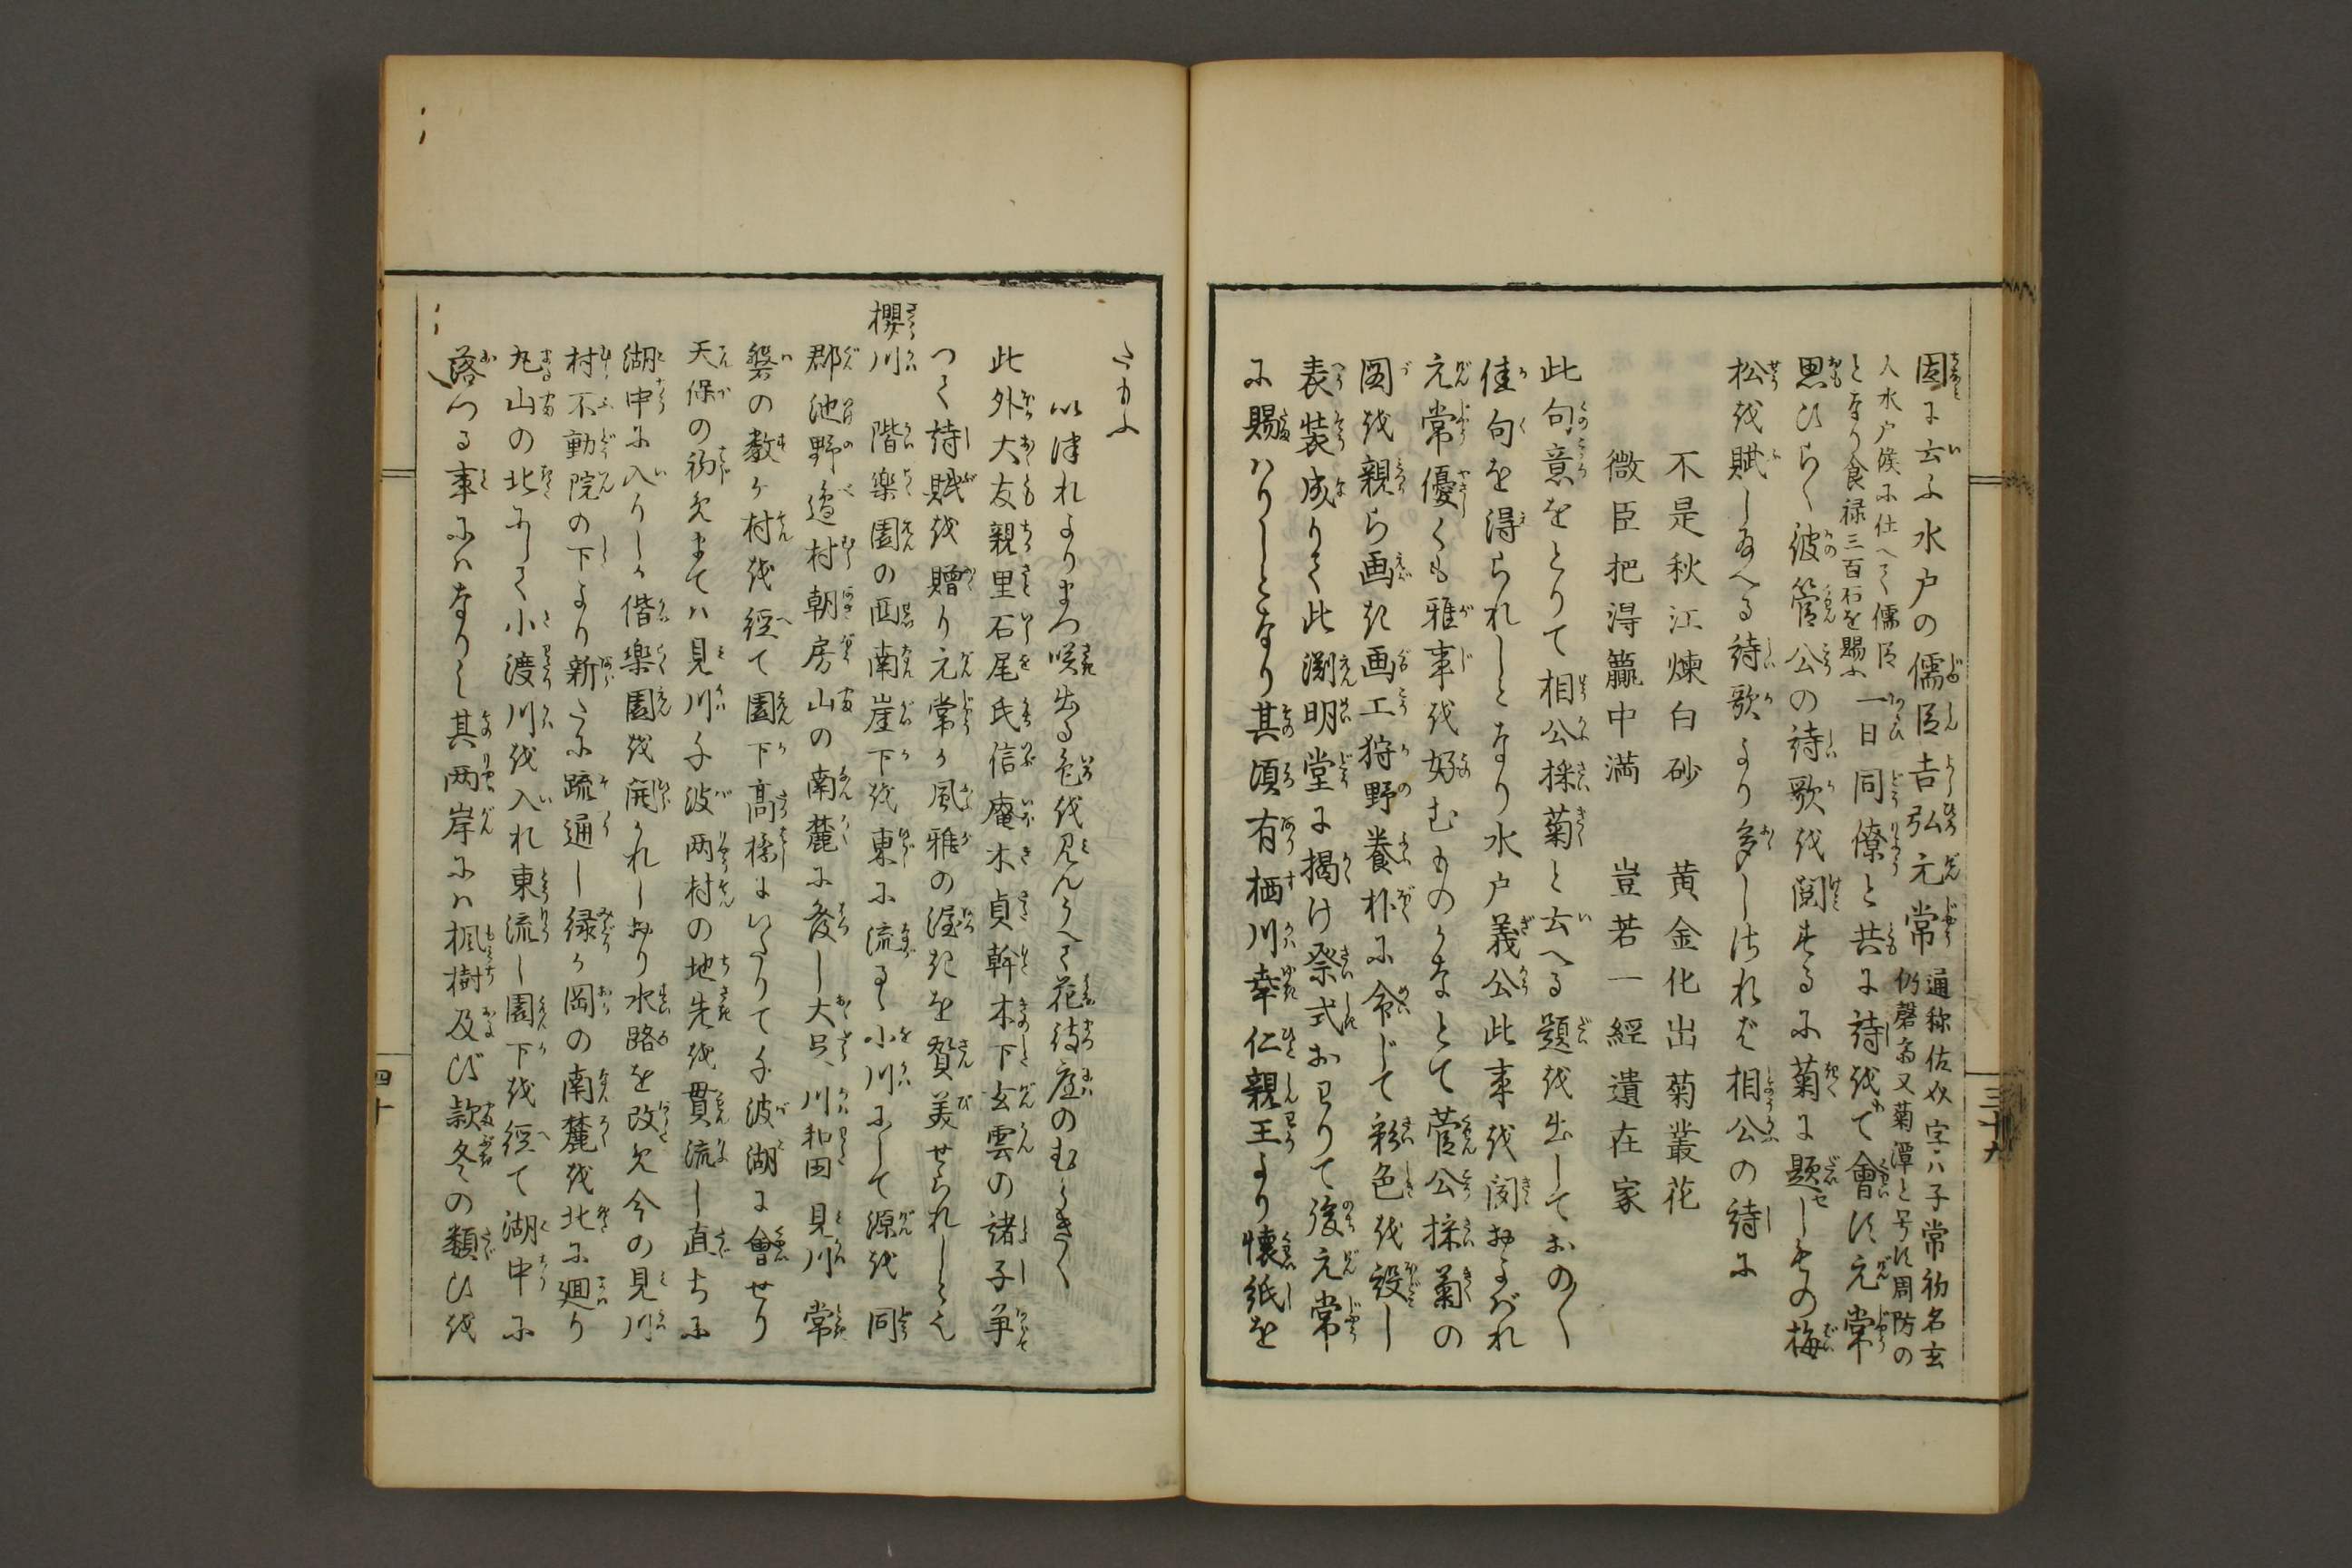 因に云ふ水戸の儒臣吉弘元常通称佐奴字ハ子常初名玄
仍磬斎又菊潭と号す周防の
人水戸侯に仕へて儒臣
となり食禄三百石を賜ふ一日同僚と共に詩を会す元常
思ひらく彼菅公の詩歌を閲するに菊に題せしもの梅
松を賦し給へる詩歌より多しされば相公の詩に
不是秋江煉白砂　黄金化出菊叢花
微臣把得籯中満　豈若一経遺在家
此句意をとりて相公採菊と云へる題を出しておの〱
佳句を得られしとなり水戸義公此事を聞およばれ
元常優くも雅事を好むものかなとて菅公採菊の
図を親ら画き画工狩野養朴に令じて彩色を設し
表装成りて此淵明堂に掲け祭式おわりて後元常
に賜ハりしとなり其頃有栖川幸仁親王より懐紙を
三十九
たまふ
いつれよりまつ咲出る色を見んうへて花待庭のむらきく
此外大友親里石尾氏信庵木貞幹木下玄雲の諸子争
つて詩賦を贈り元常か風雅の渥きを賛美せられしとそ
櫻川　偕楽園の西南崖下を東に流るゝ小川にして源を同
郡池野邉村朝房山の南麓に発し大足川和田見川常
磐の数ケ村を經て園下高橋にいたりて千波湖に會せり
天保の初めまてハ見川千波両村の地先を貫流し直ちに
湖中に入りしか偕楽園を開かれしより水路を改め今の見川
村不動院の下より新たに疏通し緑ケ岡の南麓を北に廻り
丸山の北にして小渡川を入れ東流し園下を經て湖中に
落つる事にハなりし其両岸にハ楓樹及び款冬の類ひを
四十